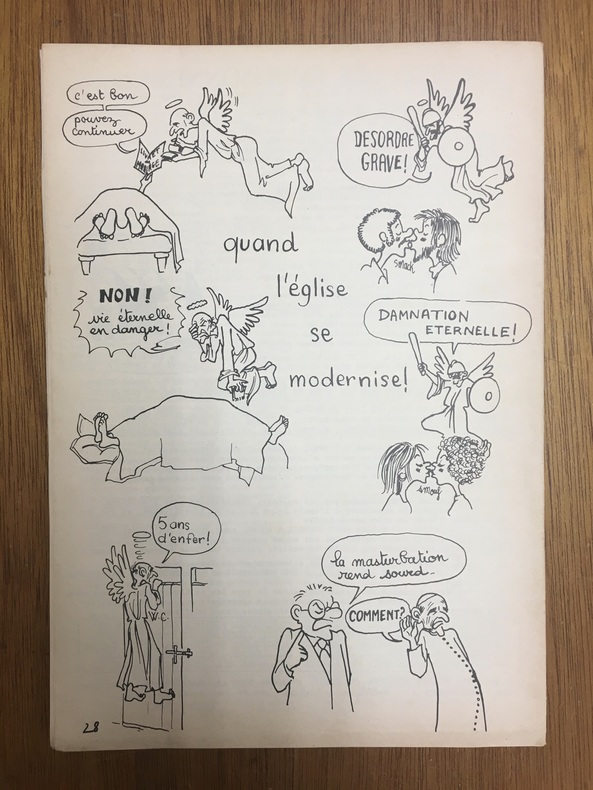 c'est bon
pouvez
continuer
DESORDRE
GRAVE!
smack
quand
l'église
se
modernise!
NON!
vie éternelle
en danger!
DAMNATION
ETERNELLE!
smouf
5 ans
d'enfer!
WC
la masturbation
rend sourd..
COMMENT?
28